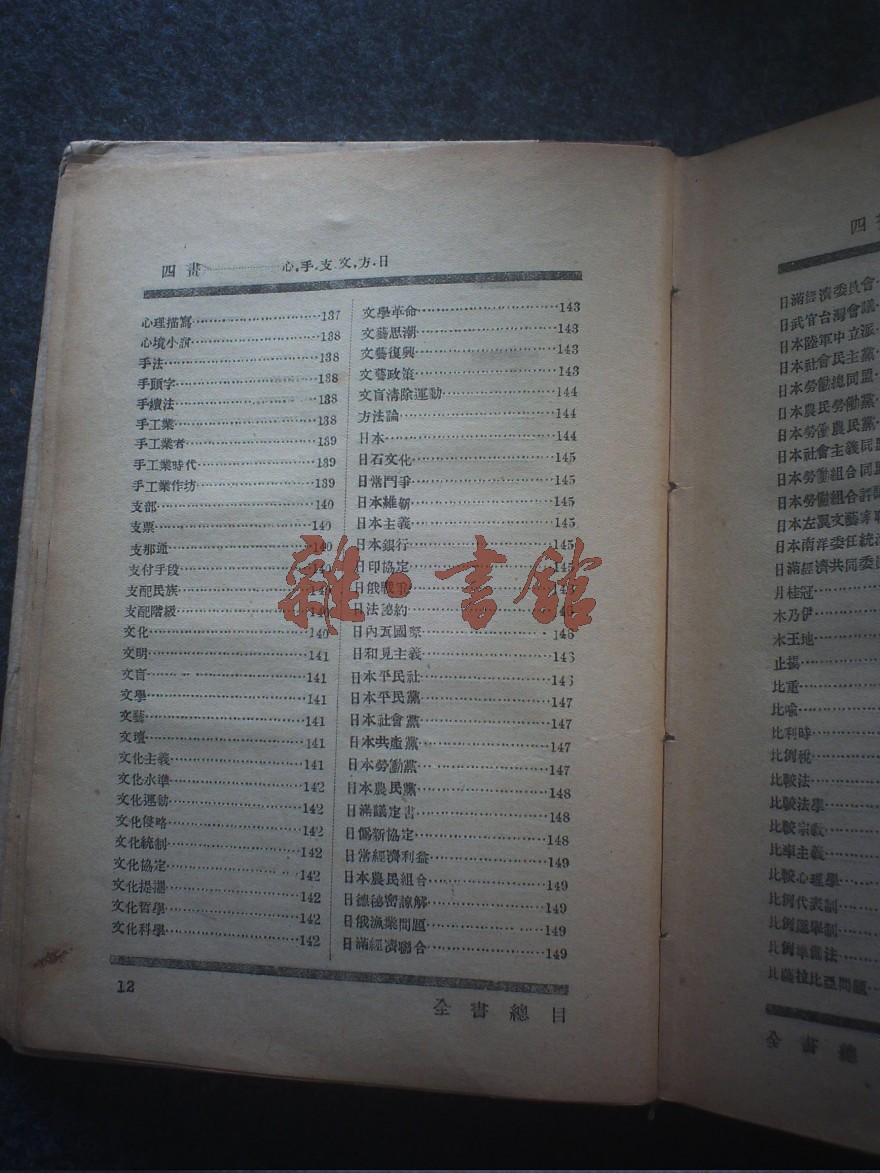 四畫 心,手,支,文,方,日
心理描寫 137
心境小說 138
手法 138
手頭字 138
手續法 138
手工業 138
手工業者 139
手工業時代 139
手工業作坊 139
支部 140
支票 140
支那通 140
支付手段 140
支配民族 140
支配階級 140
文化 140
文明 141
文盲 141
文學 141
文藝 141
文壇 141
文化主義 141
文化水準 142
文化運動 142
文化侵略 142
文化統制 142
文化協定 142
文化提攜 142
文化哲學 142
文化科學 142
文學革命 143
文藝思潮 143
文藝復興 143
文藝政策 143
文盲清除運動 144
方法論 144
日本 144
日石文化 145
日常鬥爭 145
日本維新 145
日本主義 145
日本銀行 145
日印協定 145
日俄戰爭
日法協約
日內瓦國際 146
日和見主義 146
日本平民社 146
日本平民黨 147
日本社會黨 147
日本共產黨 147
日本勞動黨 147
日本農民黨 148
日滿議定書 148
日僞新協定 148
日常經濟利益 149
日本農民組合 149
日德秘密諒解 149
日俄漁業問題 149
日滿經濟聯合 149
12
全書總目
雜·書館
四
日滿經濟委員會
日武官台灣會議
日本陸軍中立派
日本社會民主黨
日本勞動總同盟
日本農民勞動黨
日本勞働農民黨
日本社會主義同盟
日本勞働組合同盟
日本勞働組合評議
日本左翼文藝家
日本南洋委任統治
日滿經濟共同委
月桂冠
木乃伊
木王地
止揚
比重
比喻
比利時
比例稅
比較法
比較法學
比較宗教
比率主義
比較心理學
比例代表制
比例選舉制
比例準備法
比薩拉比亞問題
全書總